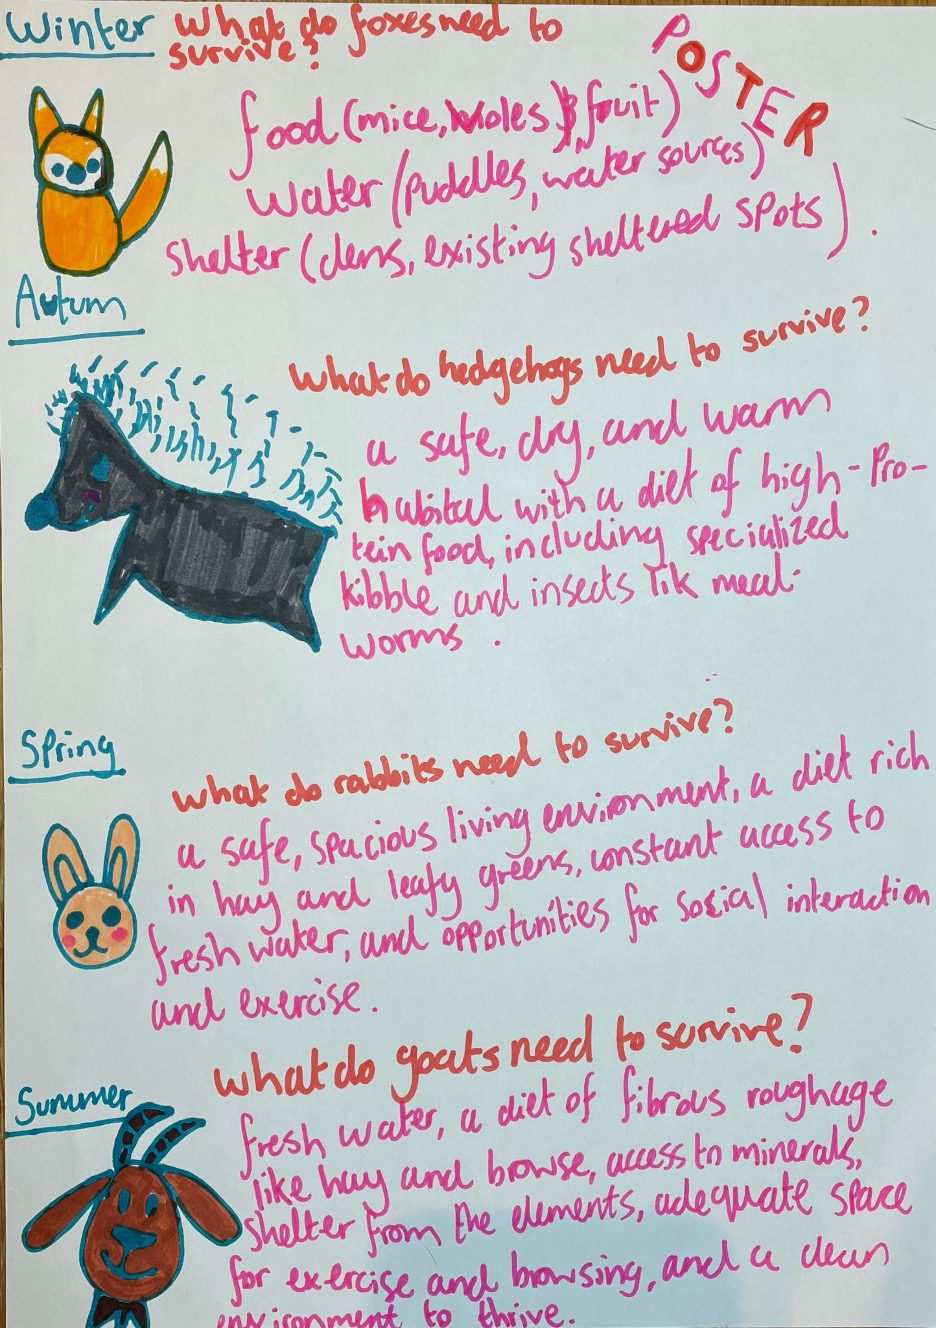 Winter
What do foxes need to
survive?
POSTER
food (mice, voles, fruit)
Water (puddles, water sources)
shelter (dens, existing sheltered spots).
Autum
What do hedgehogs need to survive?
a safe, dry, and warm
habital with a diet of high-Pro-
tein food, including specialized
kibble and insects lik meal-
worms.
Spring
what do rabbits need to survive?
a safe, spacious living environment, a diet rich
in hay and leafy greens, constant access to
fresh water, and opportunities for social interaction
and exercise.
Summer
what do goats need to survive?
fresh water, a diet of fibrous roughage
like hay and browse, access to minerals,
shelter from the elements, adequate space
for exercise and browsing, and a clean
environment to thrive.